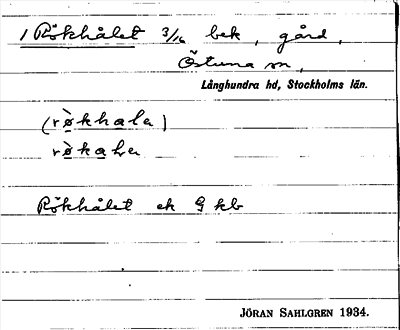 1 Rökhålet 3/16 bek, gård,
Östuna sn,
Långhundra hd, Stockholms län.
(rø̀khala)
rø̀kahla
Rökhålet ek G kb
JÖRAN SAHLGREN 1934.